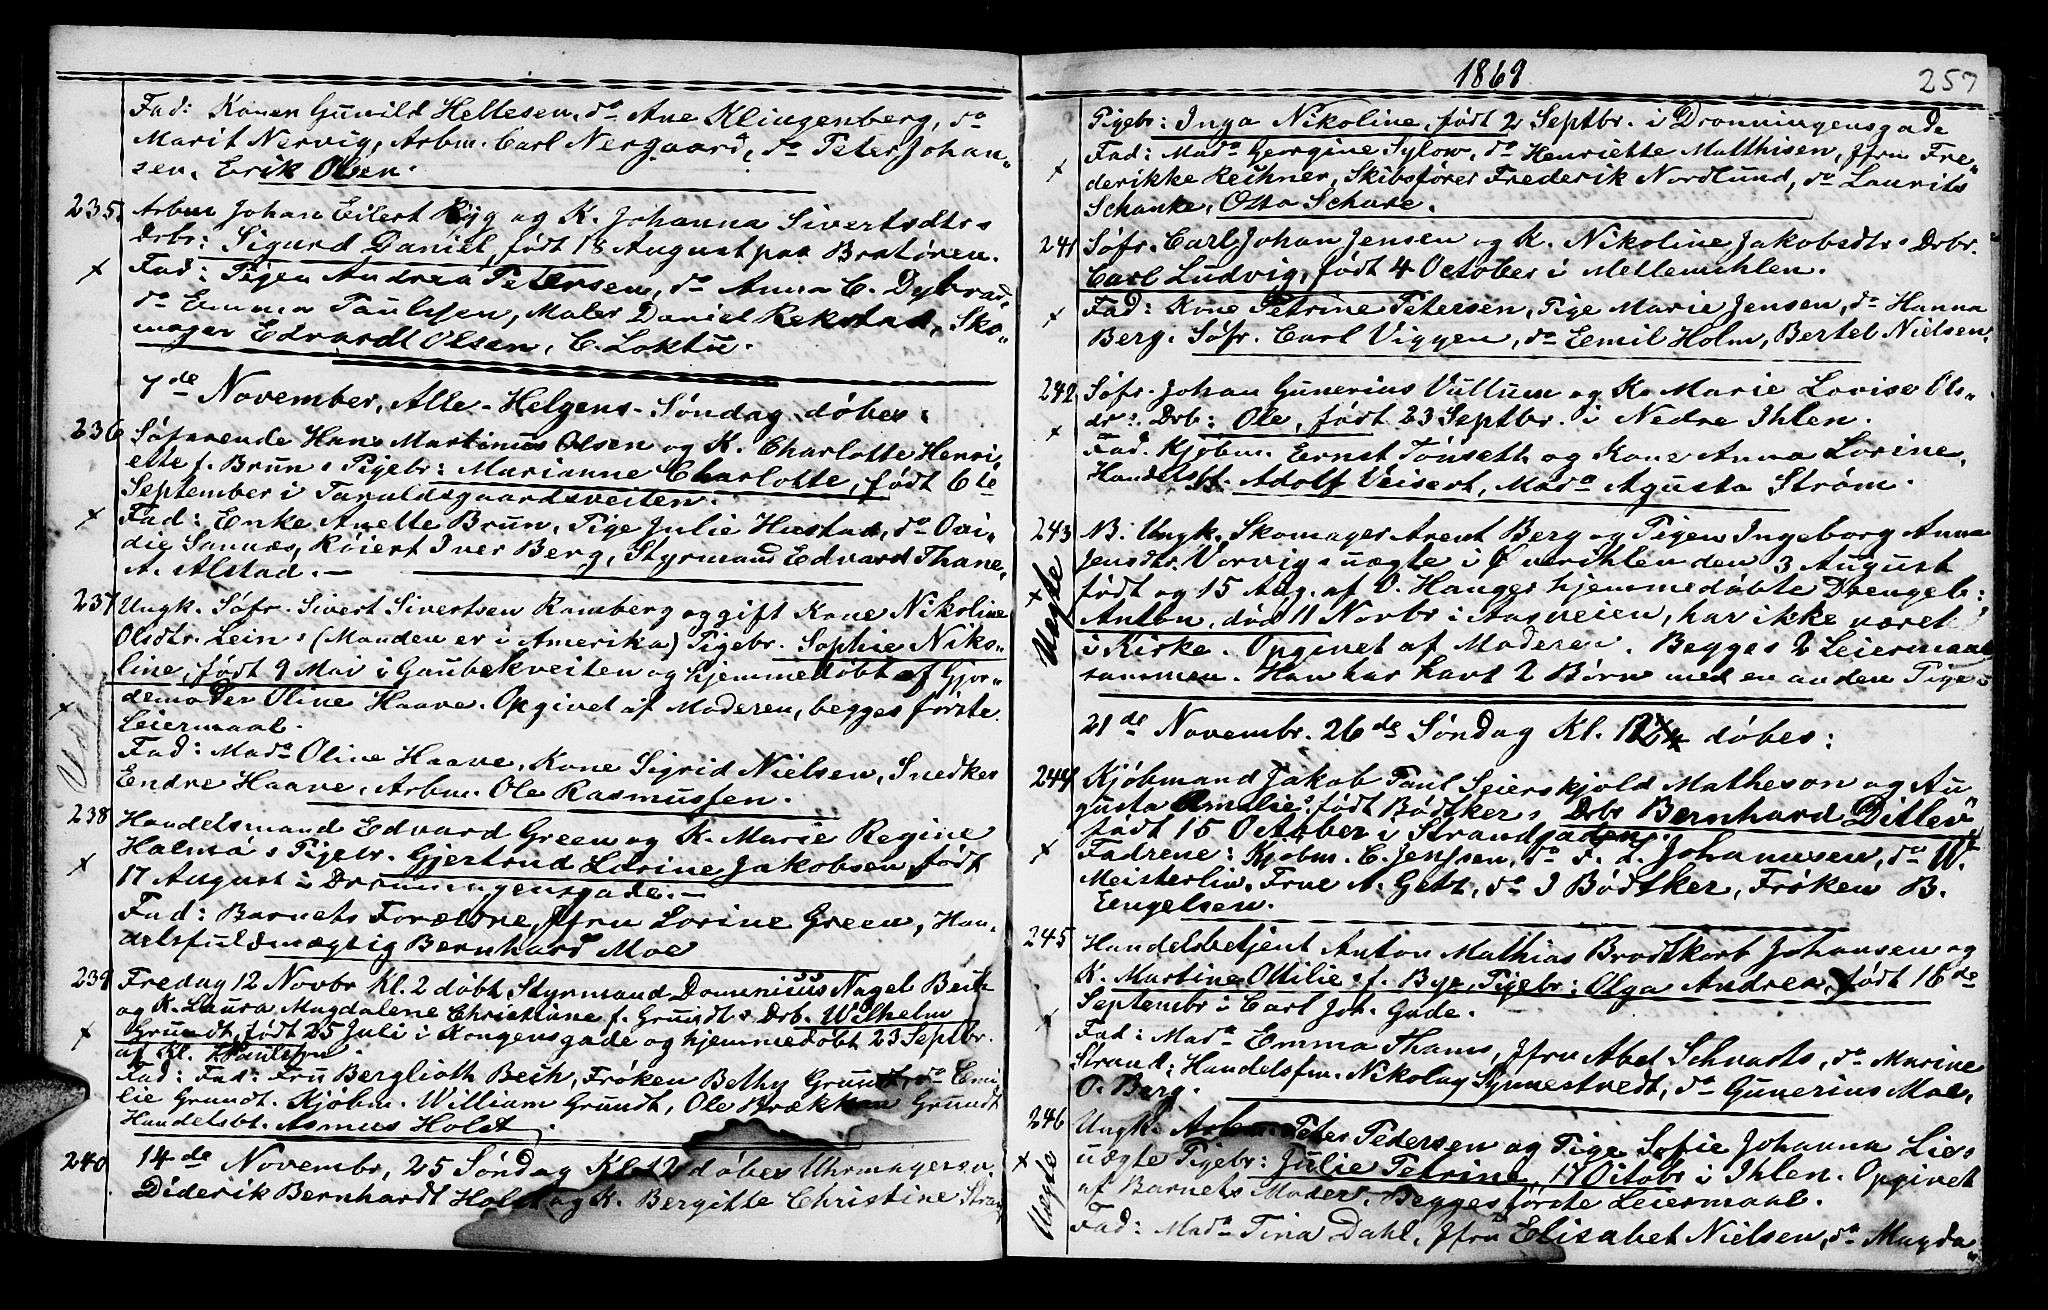 Fad: Konen Gunild Hellesen, do Ane Klingenberg, do
Marit Nervig, Arbm. Carl Nergaard, do Peter Johan„
sen, Erik Olsen.
235. Arbm Johan Eilert Ryg og K. Johanna Sivertsdtrs
Drbr: Sigurd Daniel, født 18 August paa Bratøren.
x Fad: Pigen Andrea Petersen, do Anna C. Dybvad,
do Emma Paulssen, Maler Daniel Rekstad, Sko„
mager Edvardt Olsen, C. Loktu.
7de November, Alle-Helgens-Søndag døbes:
236 Søfarende Hans Martinus Olsen og K. Charlotte Henri„
ette f. Bruns Pigebr: Marianne Charlotte, født 6te
September i Taraldsgaardsveiten.
x Fad: Enke Anette Brun, Pige Julie Hustad, do Ovi„
die Sannæs, Røiert Iver Berg, Styrmand Edvard Thane,
A. Alstad. —
237 Ungk. Søfr. Sivert Sivertsen Ramberg og gift Kone Nikoline
Olsdtr. Leins (Manden er i Amerika) Pigebr. Sophie Niko„
line, født 9 Mai i Gaubekveiten og hjemmedøbt af Gjor„
x demoder Oline Haave. Opgivet af Moderen, begges første
Leiermaal.
Fad: Mada Oline Haave, Kone Sigrid Nielsen, Snedker
Endre Haave, Arbm. Ole Rasmussen.
238 Handelsmand Edvard Green og K. Marie Regine
Holmas Pigebr. Gjertrud Lorine Jakobsen, født
x 17 August i Dronningensgade. —
Fad: Barnets Forældre, Jfru Lorine Green, Han„
delsfuldmægtig Bernhard Moe
239 Fredag 12 Novbr Kl. 2 døbt, Styrmand Dominicus Nagel Bech
og K. Laura Magdalene Christiane f. Grundts Drb. Wilhelm
x Grundt, født 25 Juli i Kongensgade og hjemmedøbt 23 Septbr.
af Kl. Paulsson.
Fad: Fad: Fru Berglioth Bech, Frøken Bethy Grundt, do Emi„
lie Grundt. Kjøbm. William Grundt, Ole Brækkan Grundt
Handelsbt. Asmus Holst.
240 14de Novembr, 25 Søndag Kl 12 døbes Uhrmagersv.
Diderik Bernhardt Holst og K. Bergitte Christine Strøm
1869 257
Pigebr: Inga Nikoline, født 2 Septbr. i Dronningensgade
x Fad: Mada Georgine Sylow, do Henriette Matthisen, Jfru Fre„
derikke Reichner, Skibsfører Frederik Nordlund, do Laurits
Schanke, Otto Schive.
241 Søfr. Carl Johan Jensen og K. Nikoline Jakobsdtrs Drbr.
Carl Ludvig, født 4 October i Mellemihlen.
x Fad: Kone Petrine Petersen, Pige Marie Jensen, do Hanna
Berg. Søfr. Carl Viggen, do Emil Holm, Bertel Nielsen.
242 Søfr. Johan Gunerius Vullum og K. Marie Lovise Ols„
dr: Drb: Ole, født 23 Septbr. i Nedre Ihlen.
x Fad. Kjøbm. Ernst Tønseth og Kone Anna Lorine,
Handelsbt. Adolf Veisert, Mada Agusta Strøm.
243 NB. Ungk. Skomager Arent Berg og Pigen Ingeborg Anna
Uegte x Jensdtr. Vorvigs uægte i Øverihlen den 3 August
født og 15 Aug. af O. Hanges hjemmedøbte Drengeb:
Anton, død 11 Novbr i Aasveien, har ikke været
i Kirke. Opgivet af Moderen. Begges 2 Leiermaal
sammen. Han har havt 2 Børn med en anden Pige.
21de Novembr. 26de Søndag Kl. 12 døbes:
244 Kjøbmand Jakob Paul Seierskjold Matheson og Au
gusta Amalies født Bødtkers Drbr Bernhard Ditlev„
født 15 October i Strandgaden.
x Fadrene: Kjøbm. C. Jenssen, do F. L. Johannsen, do W.
Meisterlin. Frue A. Getz, do I Bødtker, Frøken B.
Engelsen.
245 Handelsbetjent Anton Mathias Brodtkorb Johansen og
K. Martine Ottilie f. Bye, Pigebr: Olga Andrea, født 16de
Septembr i Carl Joh. Gade.
x Fad: Mada Emma Thams, Jfru Abel Schvarts, do Marine
Strand; Handelsfm. Nikolay Synnestvedt, do Gunerius Moe,
O. Berg.
246 Ungk. Arbm. Peter Pedersen og Pige Sofie Johanna Lies
x Uegte uægte Pigebr: Julie Petrine, 17 Octobr i Ihlen. Opgivet
af Barnets Moder. Begges første Leiermaal.
Fad: Mada Tina Dahl, Jfru Elisabet Nielsen, do Magda„